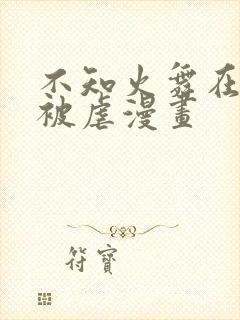 不知火舞在
被虐漫畫
符寶